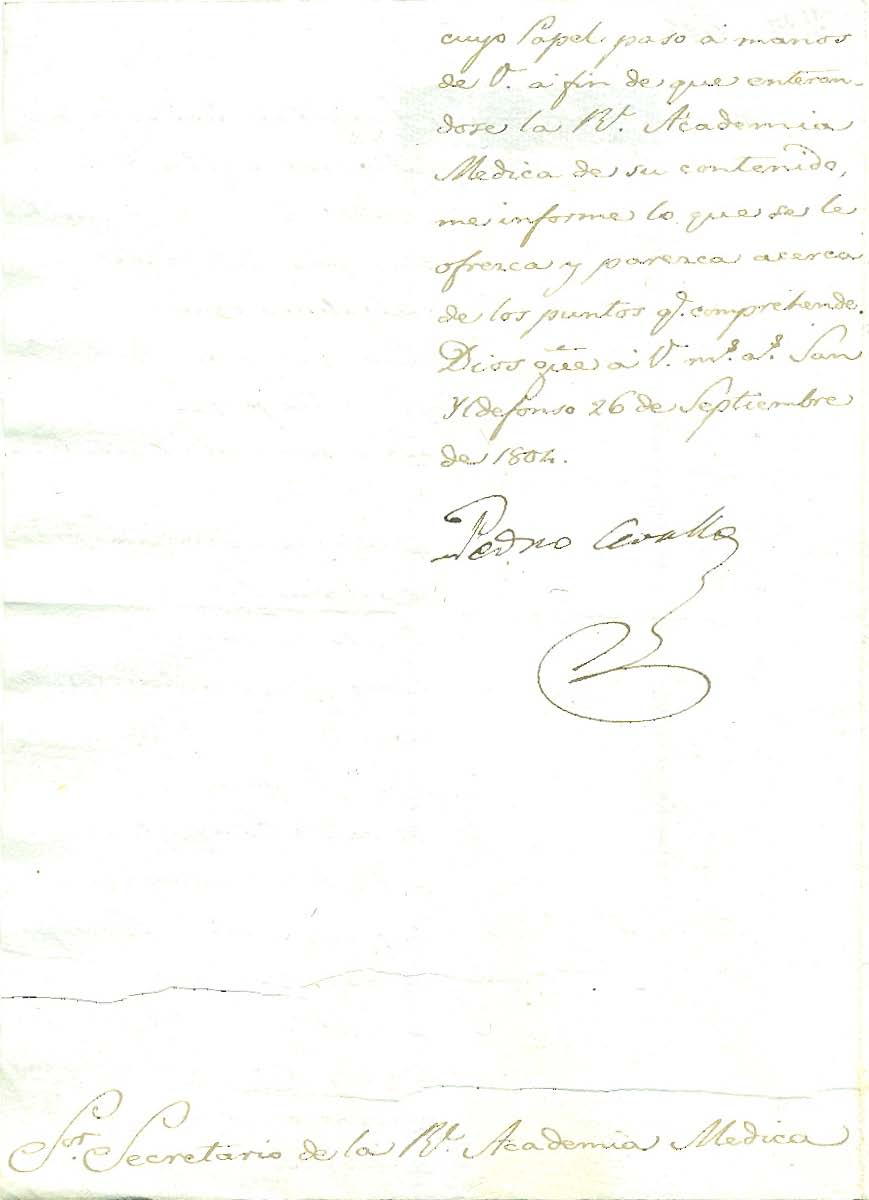 cuyo Papel paso á manos
de V. á fin de que enteran-
dose la Rl. Academia
Medica de su contenido,
me informe lo que se le
ofrezca y parezca acerca
de los puntos q.e comprehende.
Dios gũe á V. m.s a.s San
Yldefonso 26 de Septiembre
de 1804.
Pedro Cevallos
S.or Secretario de la Rl. Academia Medica